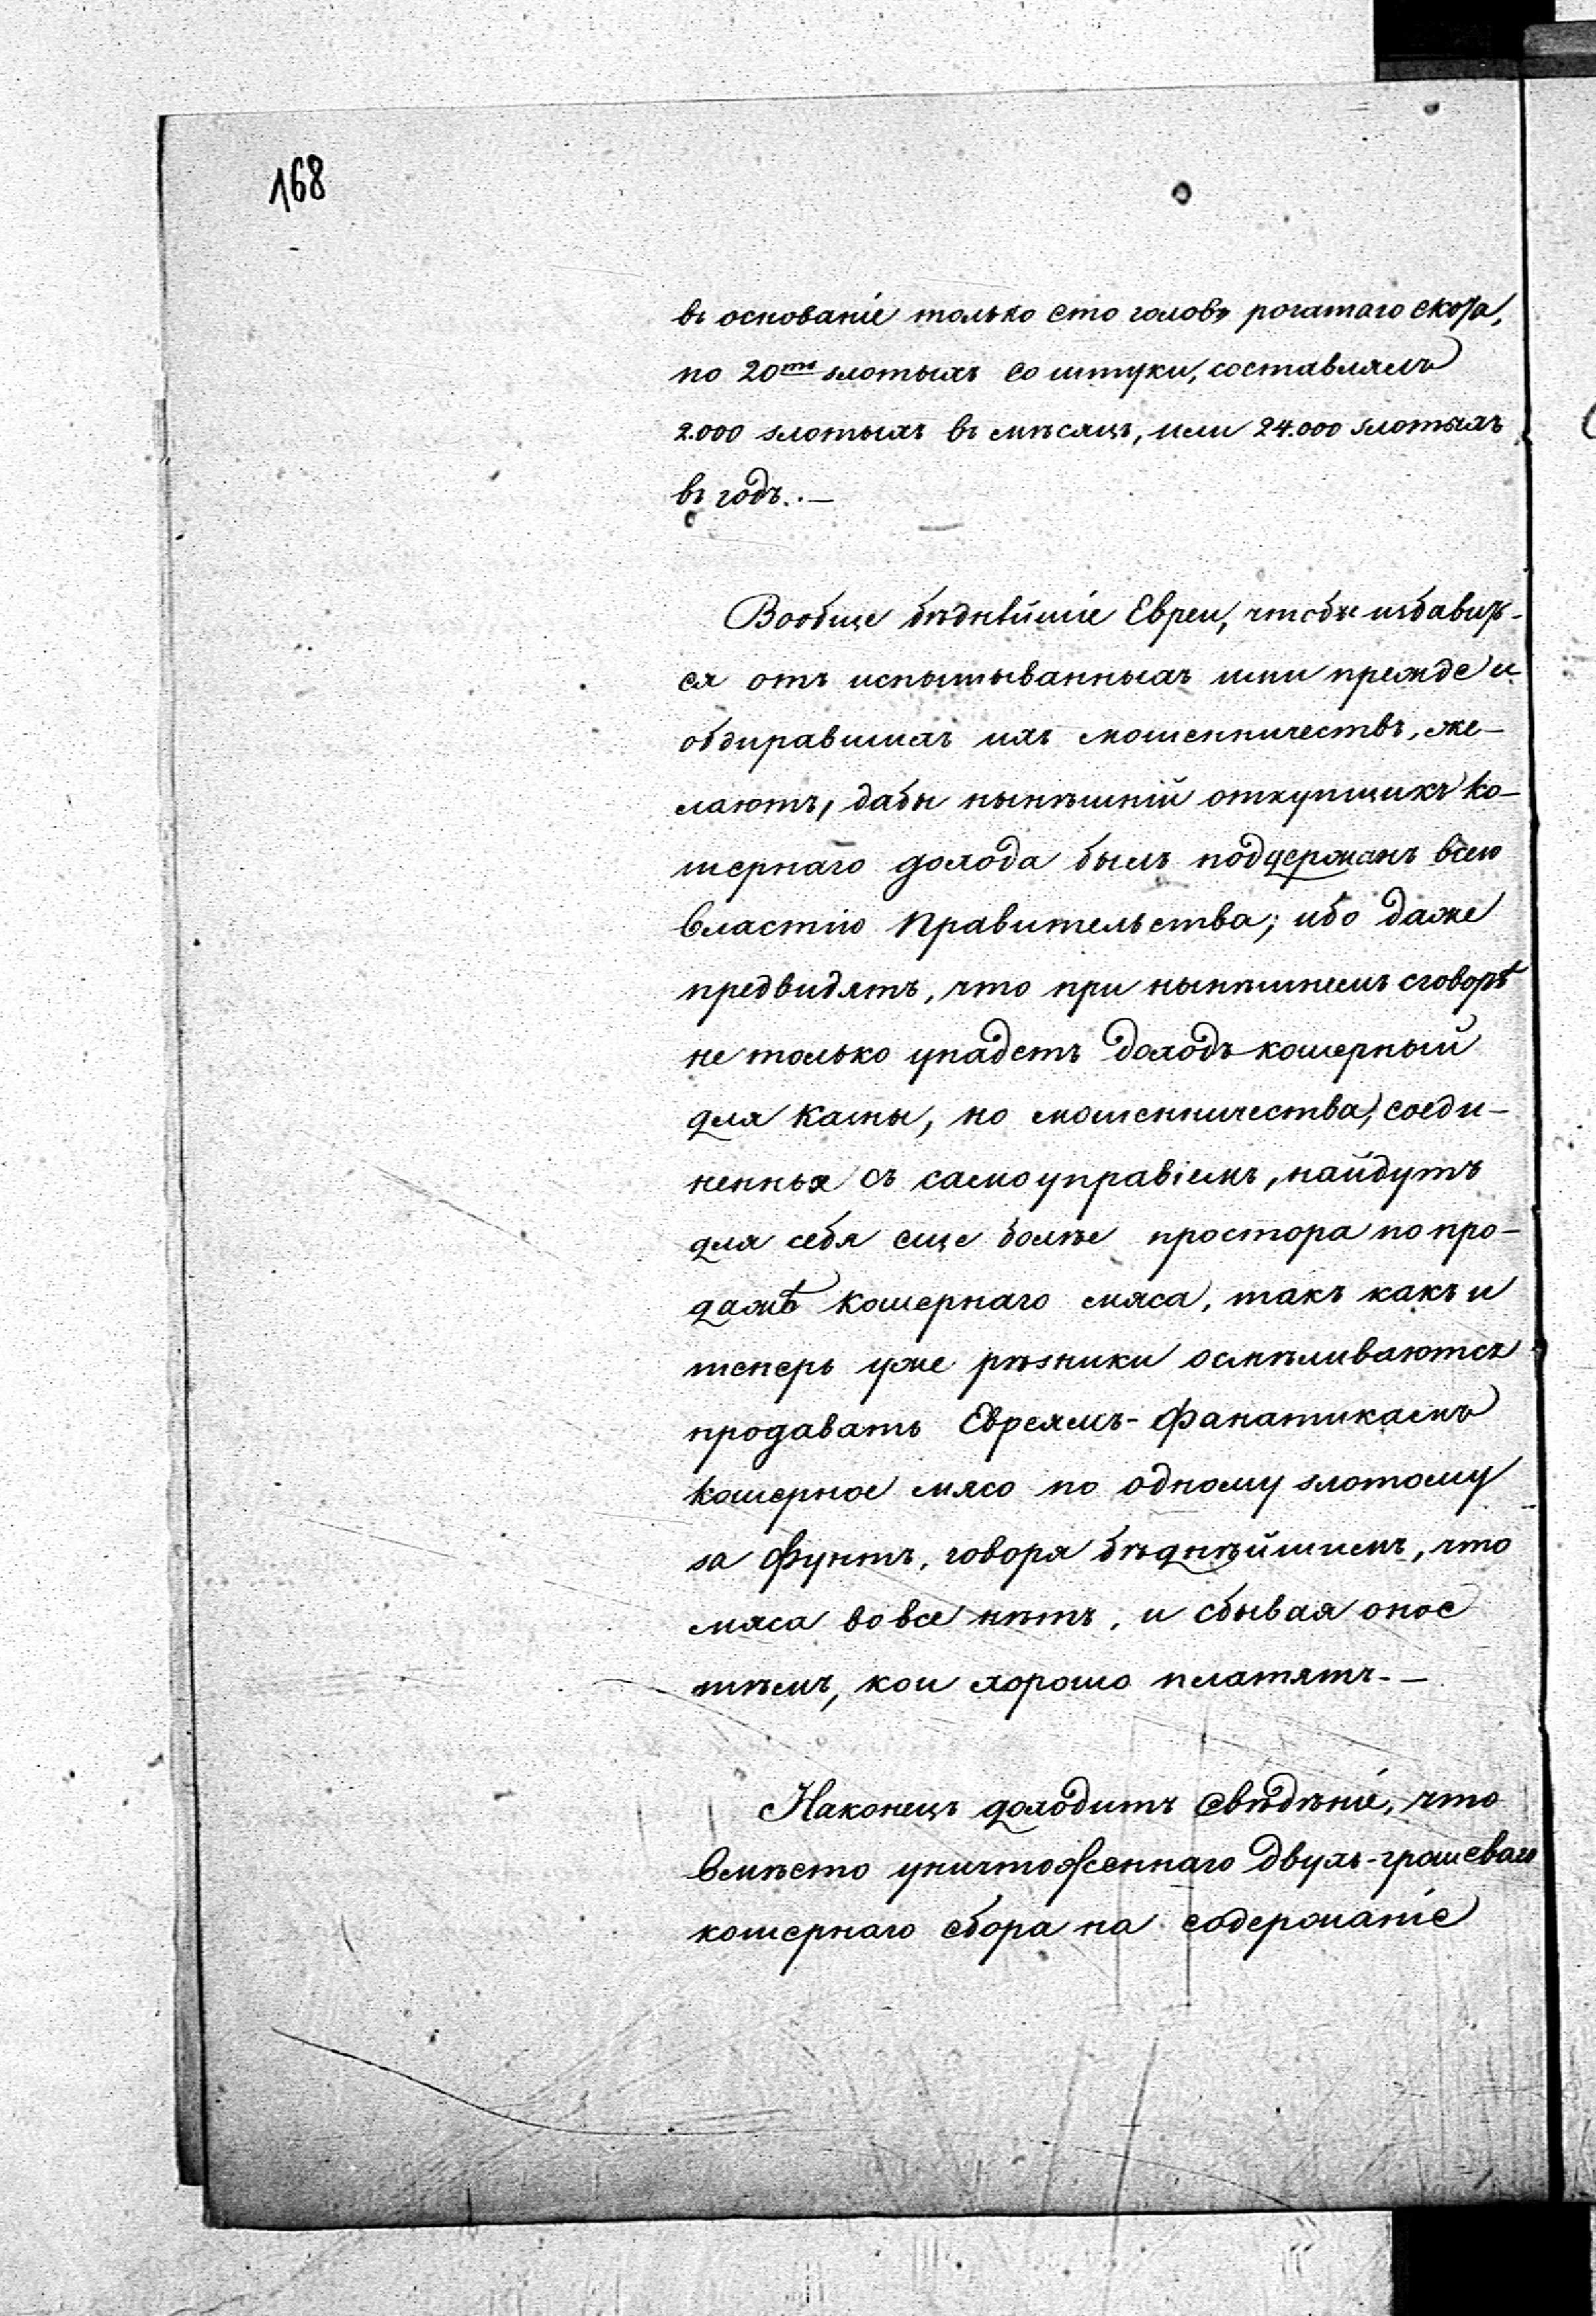 168
въ основаніе только сто головъ рогатаго скота,
по 20ти злотыхъ со штуки, составлялъ
2.000 злотыхъ въ мѣсяцъ, или 24.000 злотыхъ
въ годъ. —
Вообще бѣднѣйшіе Евреи, чтобы избавить-
ся отъ испытыванныхъ ими прежде и
обдиравшихъ ихъ мошенничествъ, же-
лаютъ, дабы нынѣшній откупщикъ ко-
шернаго дохода былъ поддержанъ всею
властію Правительства; ибо даже
предвидятъ, что при нынѣшнемъ сговорѣ
не только упадетъ доходъ кошерный
для казны, но мошенничества, соеди-
ненныя съ самоуправіемъ, найдутъ
для себя еще болѣе простора по про-
дажѣ кошернаго мяса, такъ какъ и
теперь уже рѣзники осмѣливаются
продавать Евреямъ-фанатикамъ
кошерное мясо по одному злотому
за фунтъ, говоря бѣднѣйшимъ, что
мяса вовсе нѣтъ, и сбывая оное
тѣмъ, кои хорошо платятъ. —
Наконецъ доходитъ свѣдѣніе, что
вмѣсто уничтоженнаго двухъ-грошеваго
кошернаго сбора на содержаніе